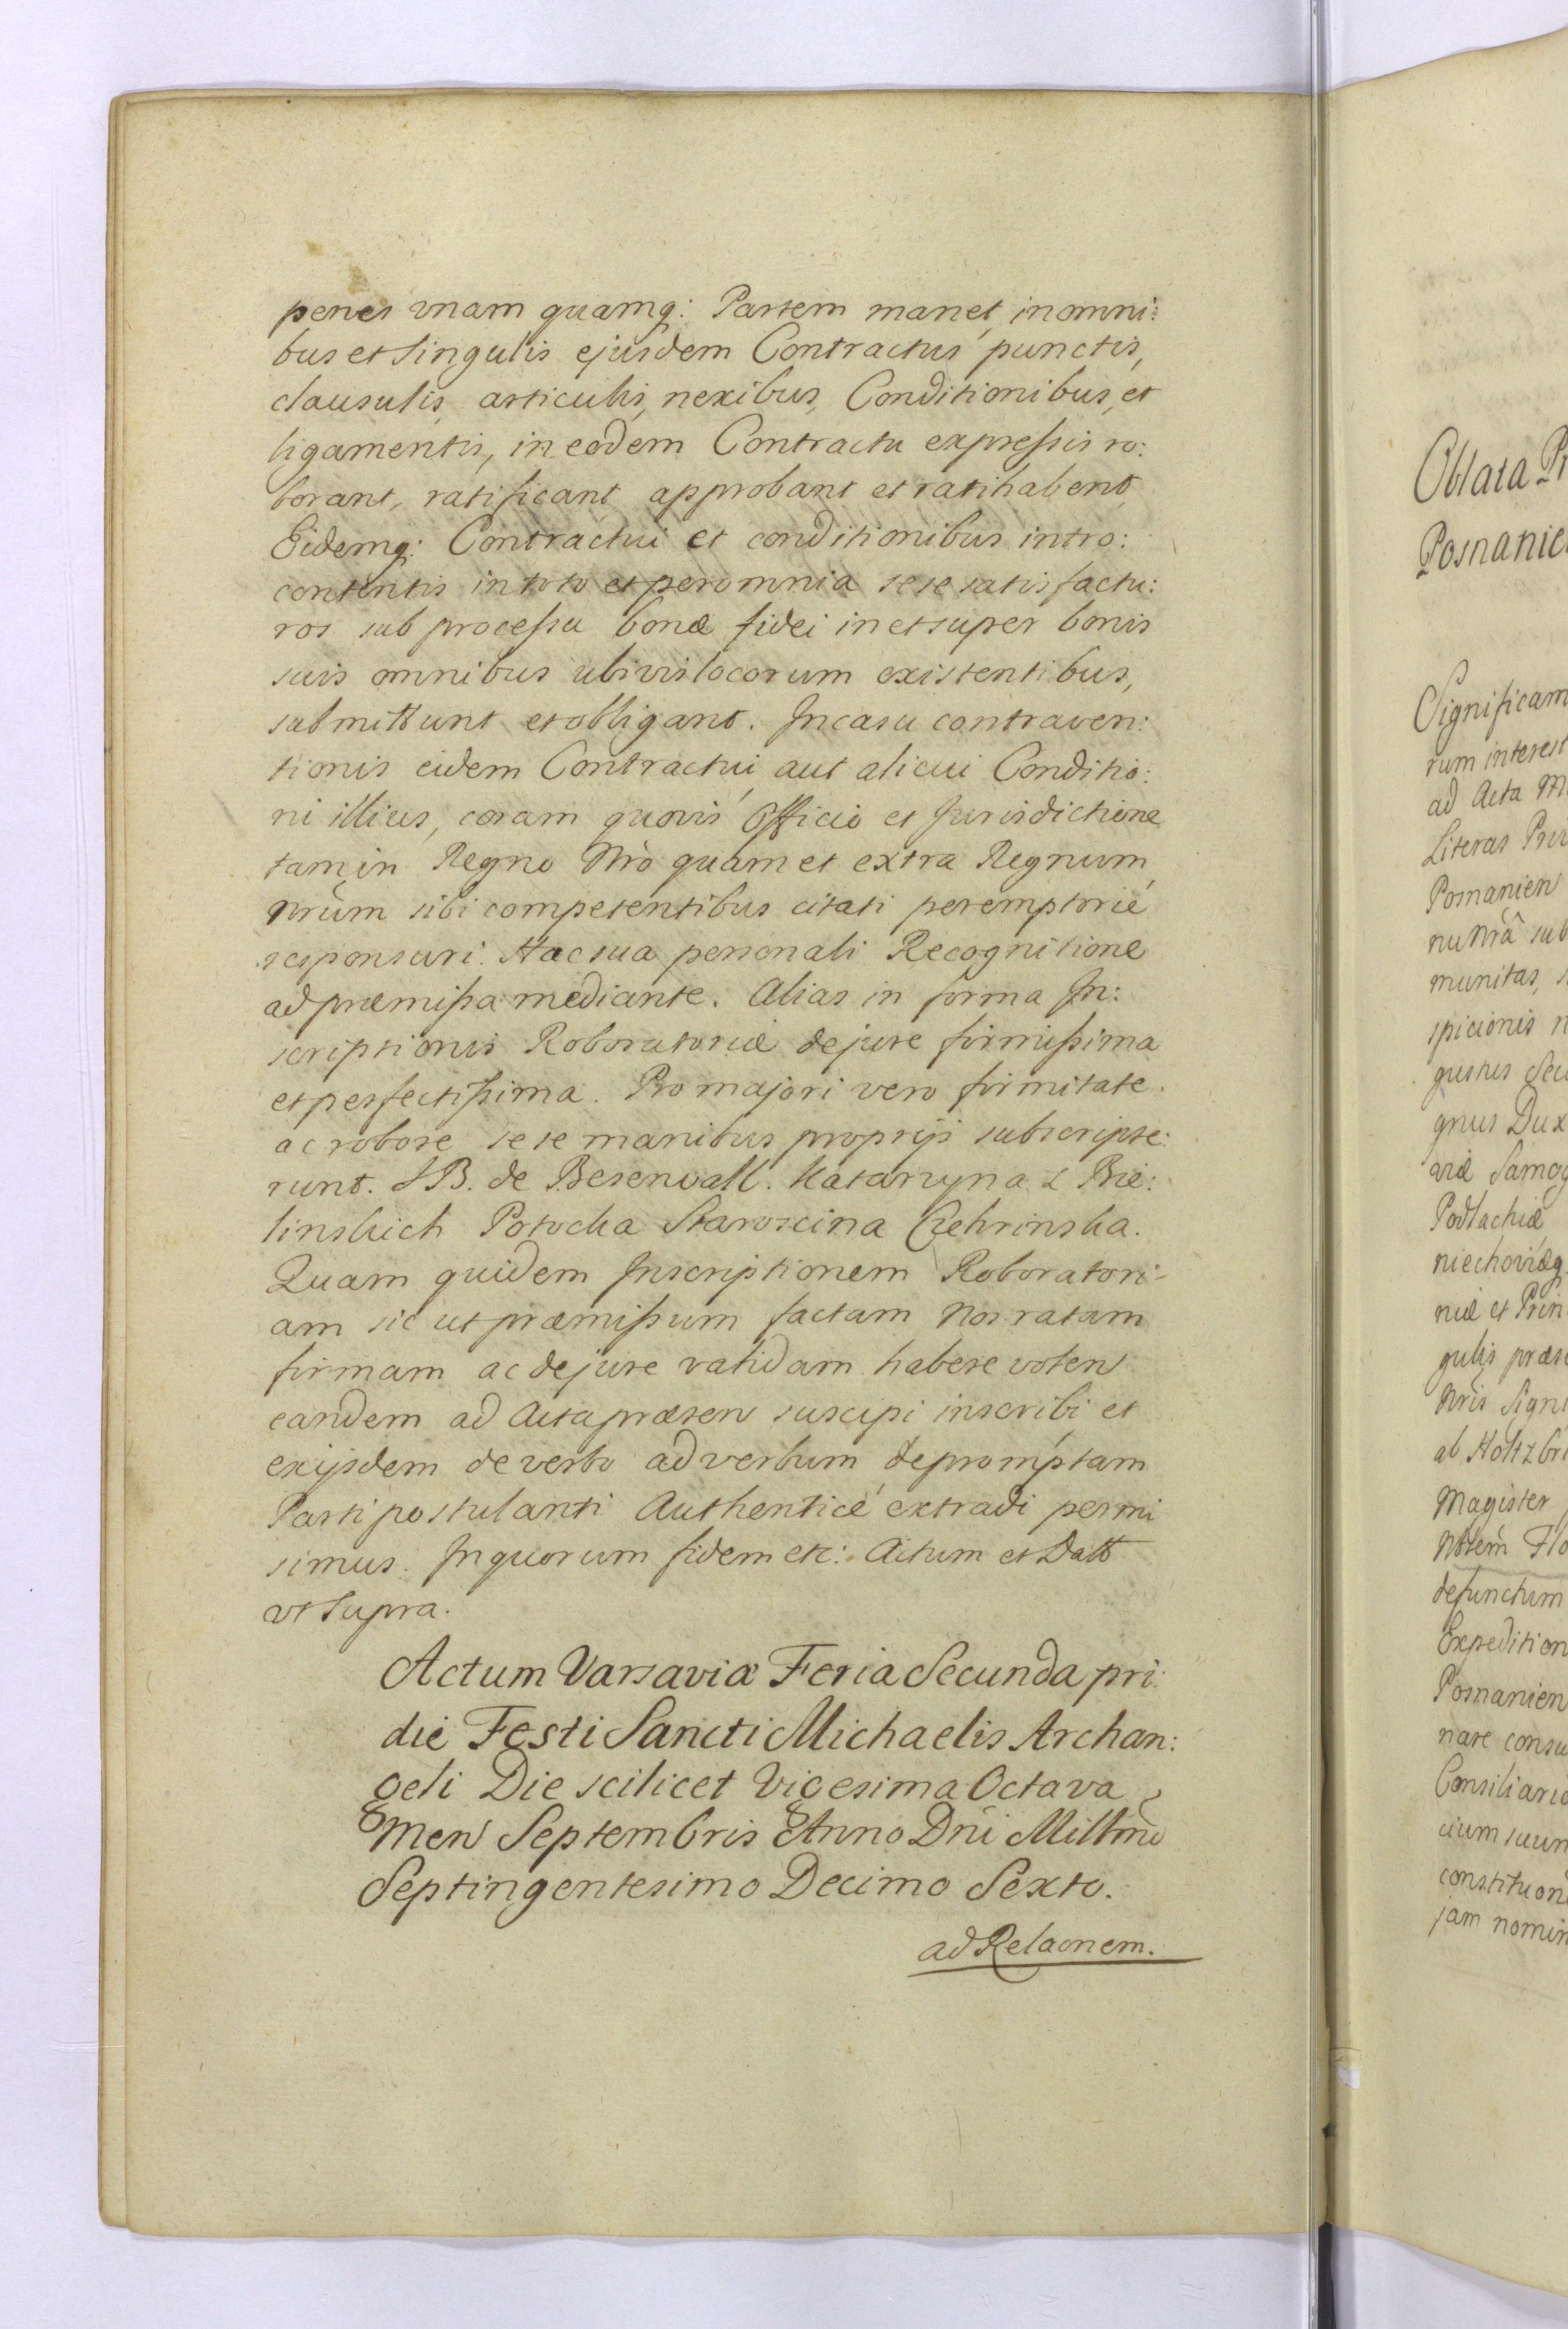 penes vnam quamq: Partem manet, in omni:
bus et Singulis ejusdem Contractus punctis,
clausulis, articulis, nexibus, Conditionibus, et
ligamentis, in eodem Contractu expressis ro:
borant, ratificant approbant et ratihabent,
Eidemq: Contractui et conditionibus intro:
contentis in toto et per omnia sese satisfactu:
ros sub processu bonæ fidei in et super bonis
suis omnibus ubivis locorum existentibus,
submittunt et obligant. In casu contraven:
tionis eidem Contractui aut alicui Conditio:
ni illius, coram quovis Officio et Jurisdictione
tam in Regno Nrò quam et extra Regnum
Nrùm sibi competentibus citati peremptorié
responsuri. Hac sua personali Recognitione
ad præmissa mediante. Alias in forma In:
scriptionis Roboratoriæ de jure firmissima
et perfectissima. Pro majori vero firmitate
ac robore sese manibus proprijs subscripse:
runt. J B. de Besenvall. Katarzyna z Bie:
linskich Potocka Staroscina Czehrinska.
Quam quidem Inscriptionem Roboratori-
am sic ut præmissum factam Nos ratam
firmam ac de jure validam habere volen
eandem ad Acta præsen suscipi inscribi et
ex ijsdem de verbo ad verbum depromptam
Parti postulanti Authenticé extradi permi
simus. In quorum fidem etc: Actum et Datt
vt Supra.
Actum Varsaviæ Feria Secunda pri:
die Festi Sancti Michaelis Archan:
geli Die scilicet Vigesima Octava
Men Septembris Anno Dni Millmo
Septingentesimo Decimo Sexto.
ad Relaonem.
Oblata
Posnanie
Significam
rum interest
ad Acta
Literas
Posnanien
nu Nrâ sub
munitas,
spicionis
gustus Sec
gnus Dux
viæ Samog
Podlachiæ
niechoviæq
niæ et Prin
gulis præse
Nris Signi
ab Holtzbri
Magister
Notem Flo
defunctum
Expedition
Posnanien
nare consu
Consiliario
cium suum
constituon
jam nomin